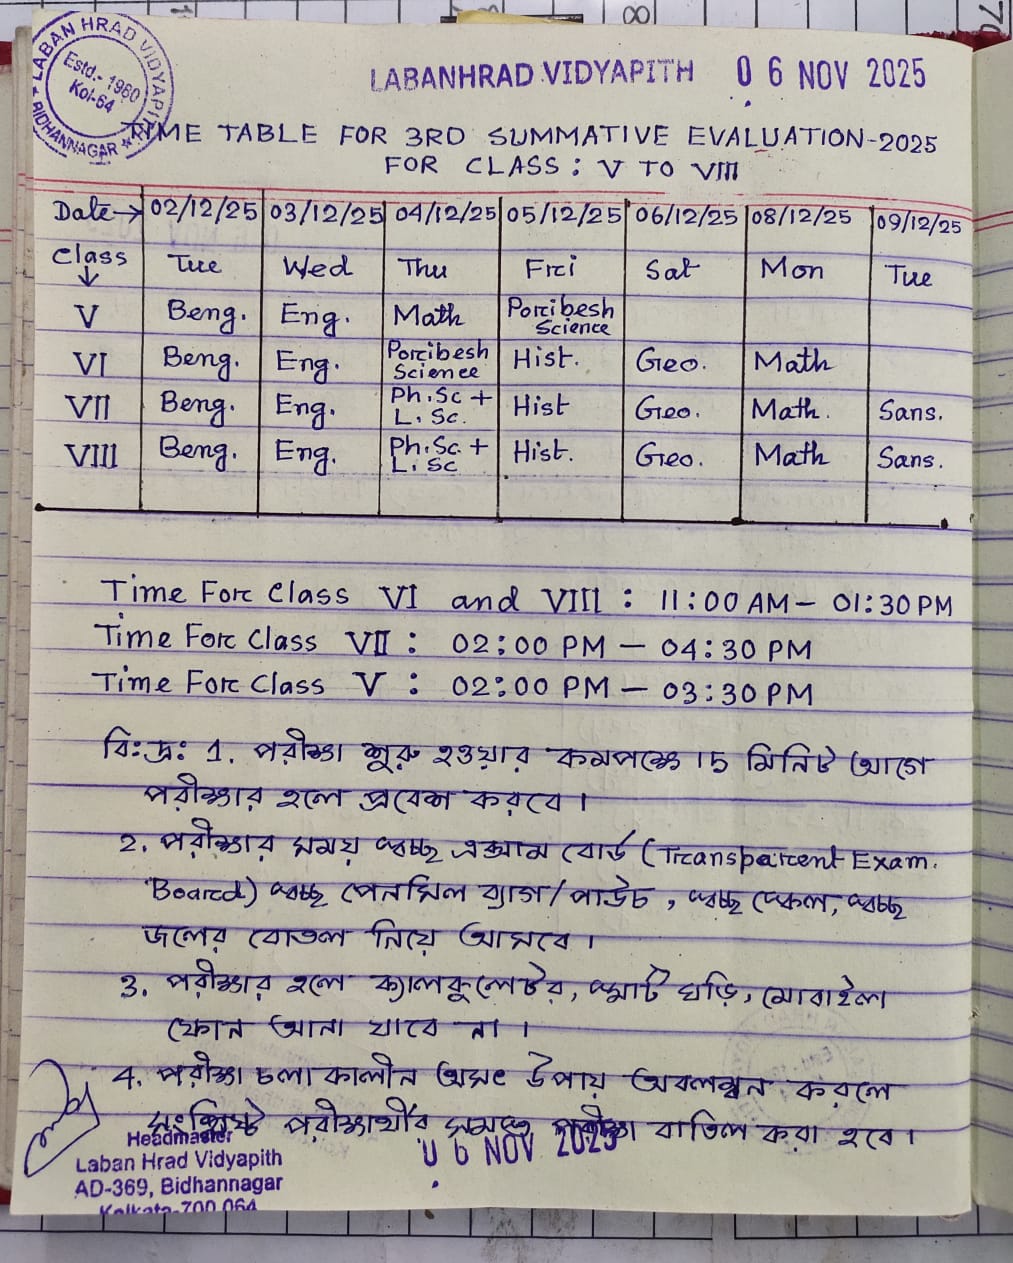 LABAN HRAD VIDYAPITH
Estd.- 1960
Kol-64
BIDHANNAGAR
LABANHRAD VIDYAPITH 06 NOV 2025
TIME TABLE FOR 3RD SUMMATIVE EVALUATION-2025
FOR CLASS : V TO VIII
Date→ 02/12/25 03/12/25 04/12/25 05/12/25 06/12/25 08/12/25 09/12/25
Class ↓ Tue Wed Thu Fri Sat Mon Tue
V Beng. Eng. Math Poribesh Science
VI Beng. Eng. Poribesh Science Hist. Geo. Math
VII Beng. Eng. Ph.Sc + L.Sc. Hist Geo. Math. Sans.
VIII Beng. Eng. Ph.Sc. + L.Sc Hist. Geo. Math Sans.
Time For Class VI and VIII : 11:00 AM - 01:30 PM
Time For Class VII : 02:00 PM - 04:30 PM
Time For Class V : 02:00 PM - 03:30 PM
বিঃদ্রঃ 1. পরীক্ষা শুরু হওয়ার কমপক্ষে 15 মিনিট আগে
পরীক্ষার হলে প্রবেশ করবে।
2. পরীক্ষার সময় স্বচ্ছ এক্সাম বোর্ড (Transparent Exam.
Board) স্বচ্ছ পেনসিল ব্যাগ/পাউচ, স্বচ্ছ স্কেল, স্বচ্ছ
জলের বোতল নিয়ে আসবে।
3. পরীক্ষার হলে ক্যালকুলেটর, স্মার্ট ঘড়ি, মোবাইল
ফোন আনা যাবে না।
4. পরীক্ষা চলাকালীন অসৎ উপায় অবলম্বন করলে
সংশ্লিষ্ট পরীক্ষার্থীর সমস্ত পরীক্ষা বাতিল করা হবে।
Headmaster
06 NOV 2025
Laban Hrad Vidyapith
AD-369, Bidhannagar
Kolkata-700 064